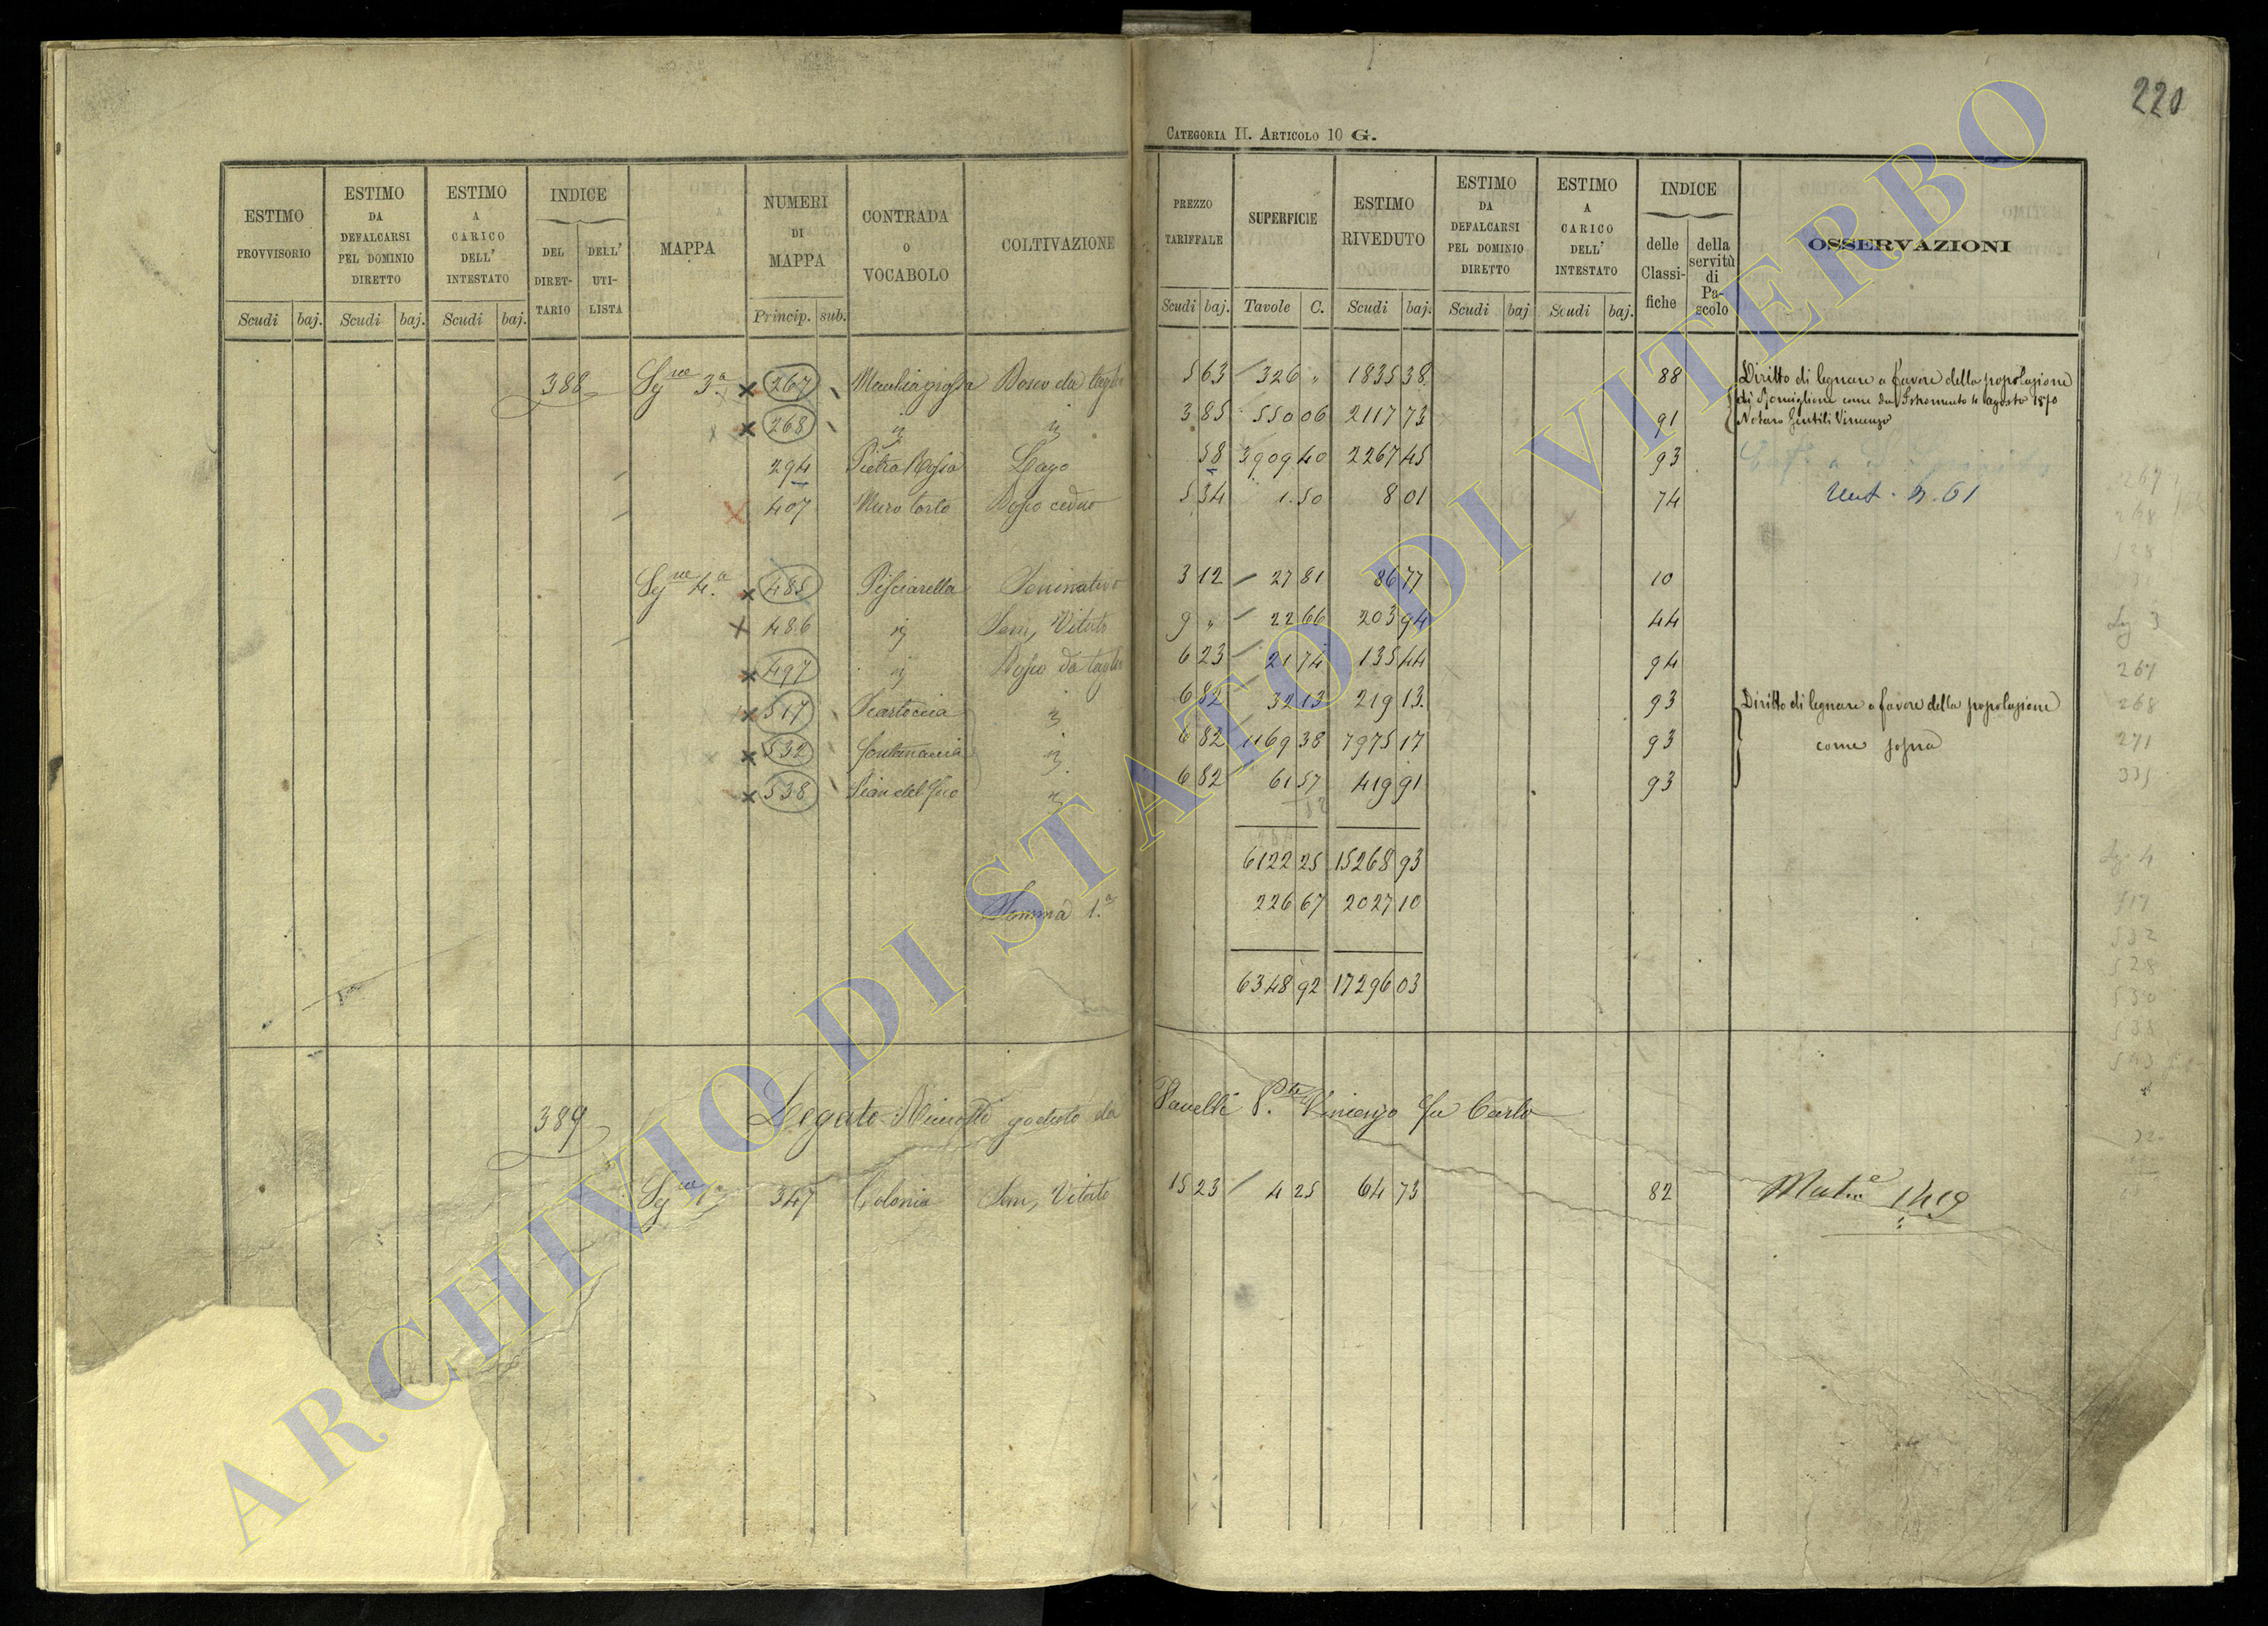 220
CATEGORIA II. ARTICOLO 10 G.
ESTIMO PROVVISORIO
ESTIMO DA DEFALCARSI PEL DOMINIO DIRETTO
ESTIMO A CARICO DELL' INTESTATO
INDICE
DEL DIRETTARIO
DELL' UTILISTA
MAPPA
NUMERI DI MAPPA
CONTRADA O VOCABOLO
COLTIVAZIONE
PREZZO TARIFFALE
SUPERFICIE
ESTIMO RIVEDUTO
ESTIMO DA DEFALCARSI PEL DOMINIO DIRETTO
ESTIMO A CARICO DELL' INTESTATO
INDICE
delle Classifiche
della servitù di Pascolo
OSSERVAZIONI
Scudi baj. Scudi baj. Scudi baj. Princip. sub. Scudi baj. Tavole C. Scudi baj. Scudi baj Scudi baj.
388 Sez 3.a 267 Macchia grossa Bosco da taglio 5 63 326 " 1835 38 88 Diritto di legnare a favore della popolazione
di Ronciglione come da Istromento 4 agosto 1870
268 3 85 550 06 2117 73 91 Notaro Gentili Vincenzo
294 Pietra Rossa Lago 58 3909 40 2267 45 93
407 Muro torto Bosco ceduo 5 34 1.50 8 01 74 61
4.a 485 Pisciarella Seminativo 3 12 27 81 86 77 10
486 Sem, Vitato 9 " 22 66 203 94 44
497 Bosco da taglio 6 23 21 74 135 44 94
517 Scartoccia 6 82 32 13 219 13. 93 Diritto di legnare a favore della popolazione
532 6 82 1169 38 7975 17 93 come sopra
538 6 82 61 57 419 91 93
6122 25 15268 93
Somma 1.a 226 67 2027 10
6348 92 17296 03
389 Legato goduto da Vincenzo fu Carlo
347 Colonia Sem, Vitato 15 23 4 25 64 73 82 1419
267
268
271
335
517
532
528
530
538
ARCHIVIO DI STATO DI VITERBO